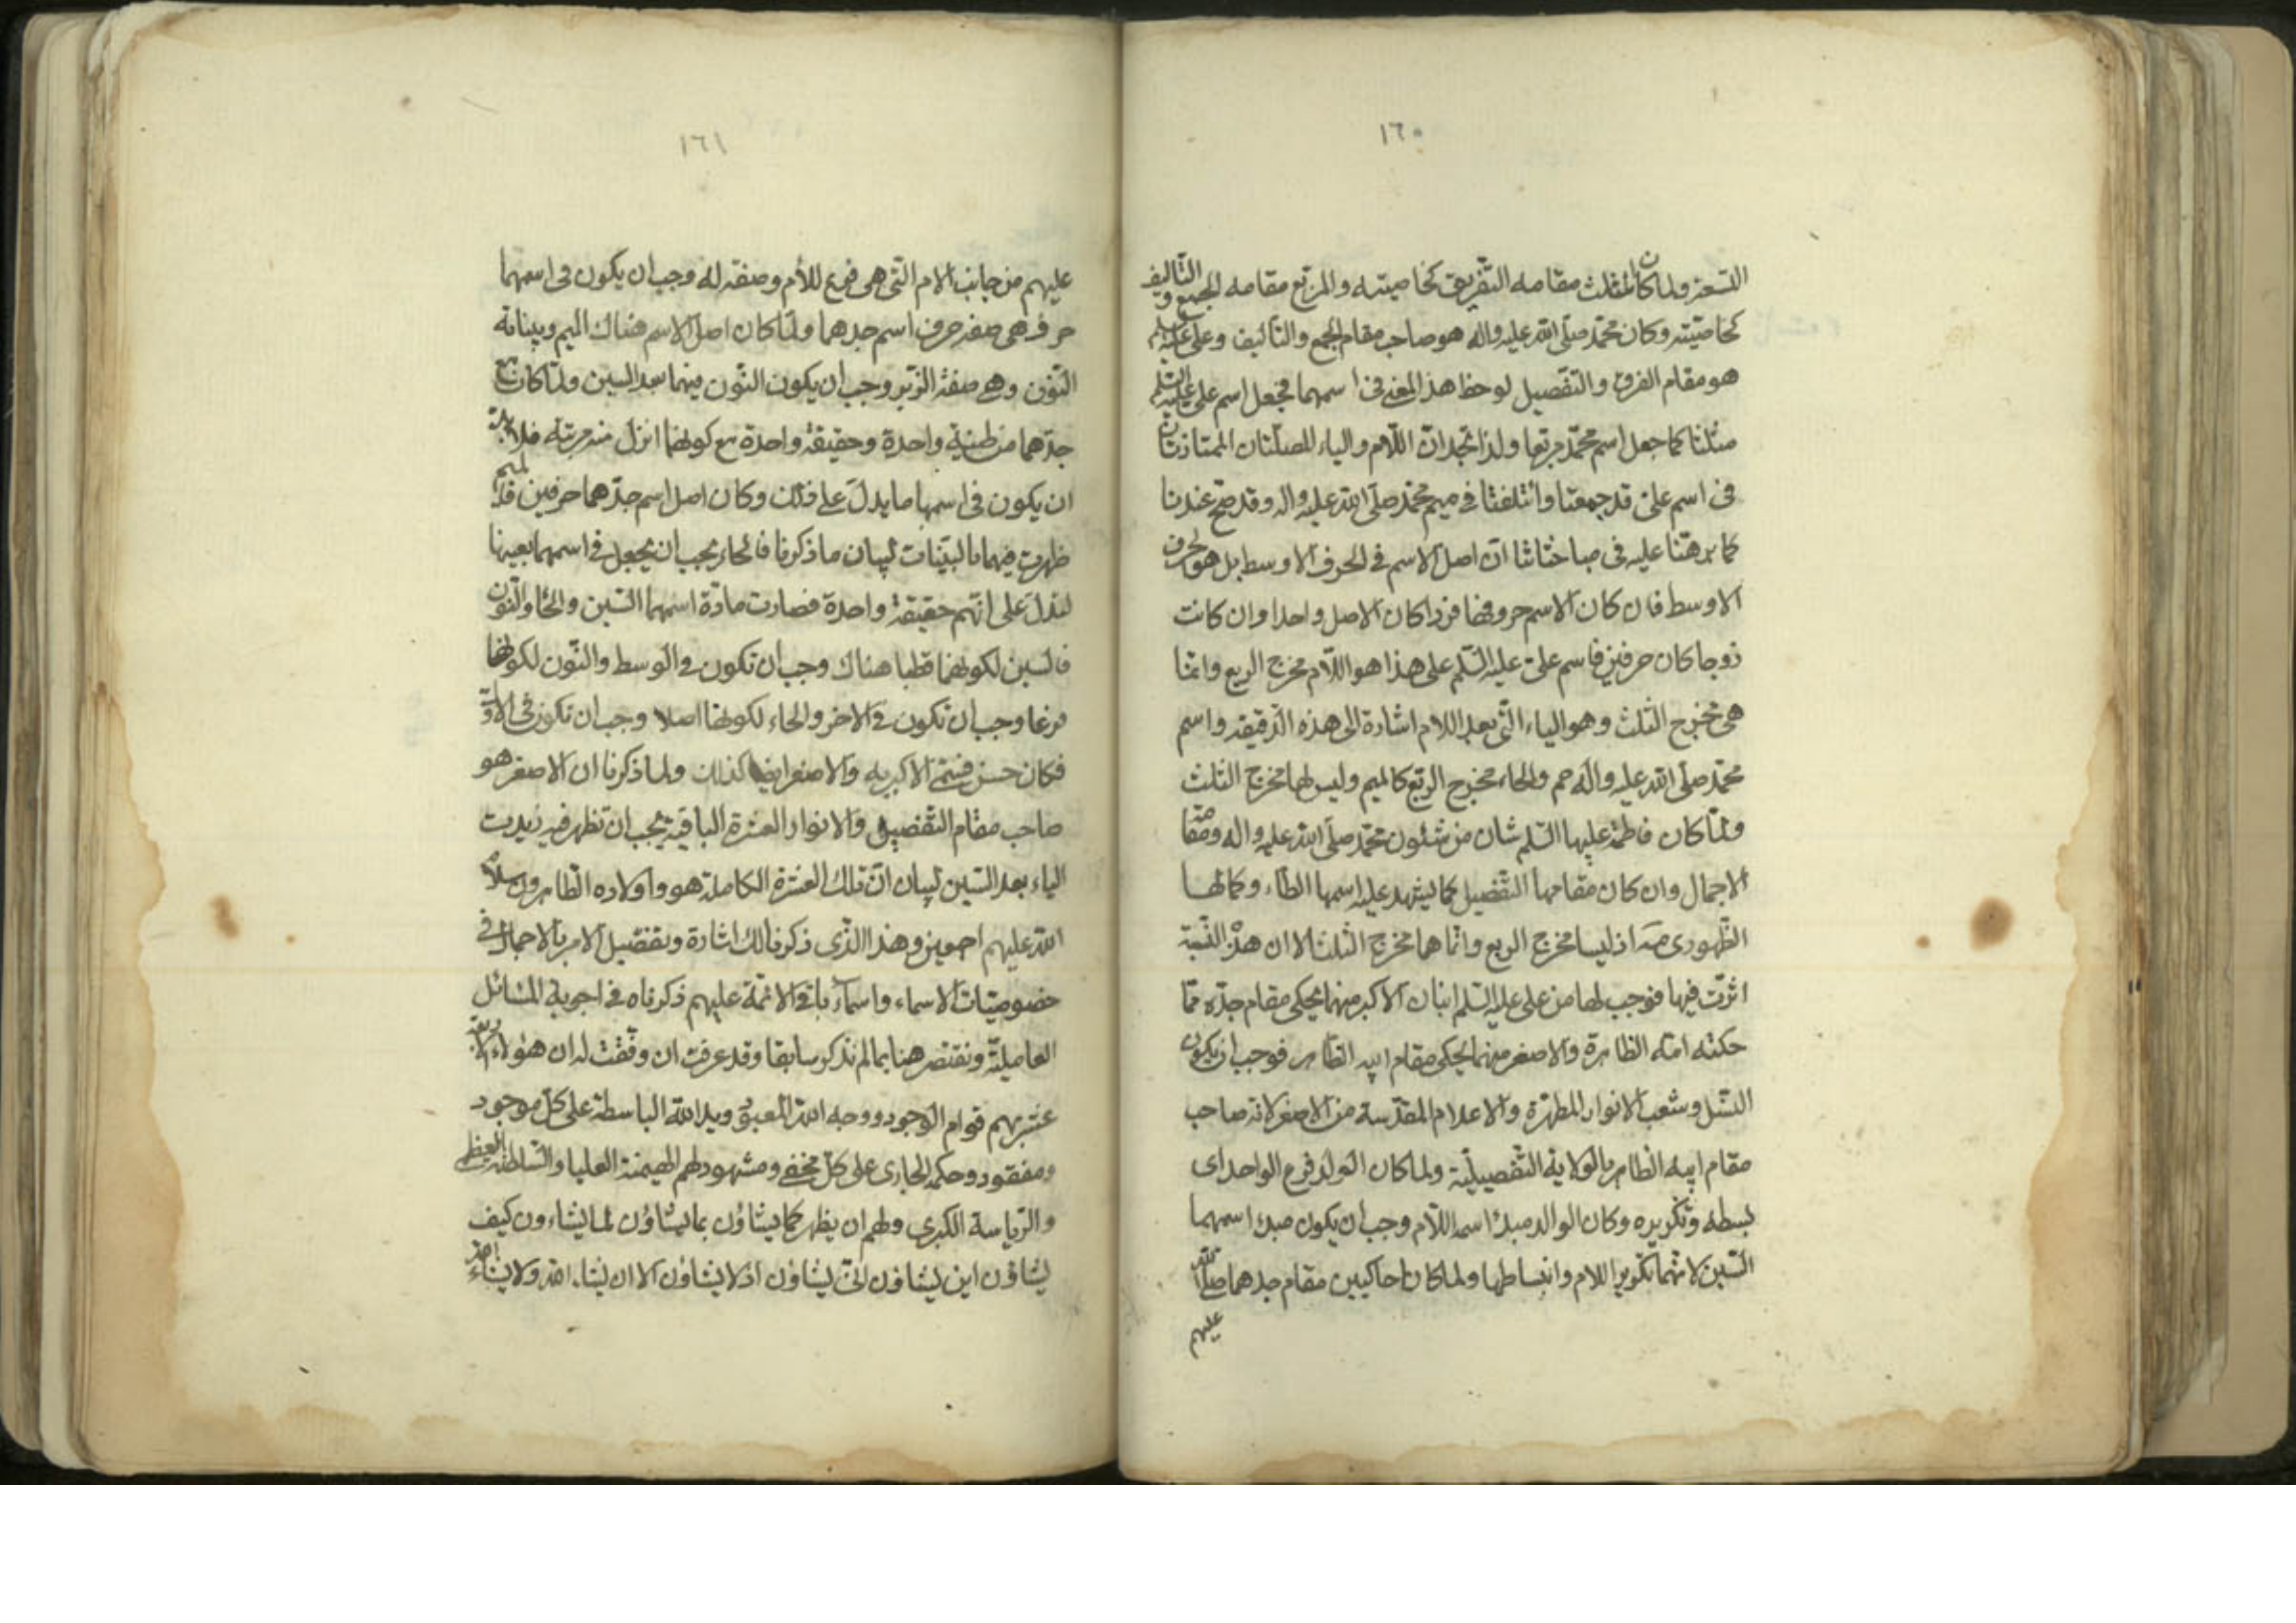 ١٦٠
التسعة ولما كان المثلث مقامه التفريق كخاصيته والمربع مقامه الجمع و التاليف
كخاصيته وكان محمد صلى الله عليه واله هو صاحب مقام الجمع والتاليف وعلى عليه السلم
هو مقام الفرق والتفصيل لوحظ هذا المعنى فى اسمهما فجعل اسم على عليه السلم
مثلثا كما جعل اسم محمد مربعا ولذا تجد ان اللام والياء المصلتان الممتازتان
فى اسم على قد جمعتا وائتلفتا فى ميم محمد صلى الله عليه واله وقد صح عندنا
كما برهنا عليه فى مباحثاتنا ان اصل الاسم فى الحرف الاوسط بل هو الحرف
الاوسط فان كان الاسم حروفها فردا كان الاصل واحدا وان كانت
زوجا كان حرفين فاسم على عليه السلم على هذا هو اللام مخرج الربع وانما
هى مخرج الثلث وهو الياء التى بعد اللام اشارة الى هذه الدقيقه واسم
محمد صلى الله عليه واله حم والحاء مخرج الربع كالميم وليس لها مخرج الثلث
ولما كان فاطمة عليها السلم شان من شئون محمد صلى الله عليه واله ومقامه
الاجمال وان كان مقامها التفصيل كما يشهد عليه اسمها الطاء وكمالها
الظهورى مه اذ ليسا مخرج الربع وانما هما مخرج الثلث الا ان هذه النسبة
اثرت فيها فوجب لها من على عليه السلم ابنان الاكبر منهما يحكى مقام جده مما
حكته امه الطاهرة والاصغر منهما يحكى مقام ابيه الطاهر فوجب ان يكون
النسل وشعب الانوار المطهرة والاعلام المقدسة من الاصغر لانه صاحب
مقام ابيه الطاهر بالولاية التفصيلية ولما كان الولد فرع الواحد اى
بسطه وتكريره وكان الوالد مبدء اسمه اللام وجب ان يكون مبدء اسمهما
السين لانهما تكرير اللام وانبساطها ولما كانا حاكيين مقام جدهما صلى الله
عليهم
١٦١
عليهم من جانب الام التى هى فرع للأم وصفة له وجب ان يكون فى اسمهما
حرف هى صفة حرف اسم جدهما ولما كان اصل الاسم هناك الميم وبيناته
النون وهى صفة الزبر وجب ان يكون النون فيهما بعد السين ولما كان مع
جدهما من طينة واحدة وحقيقة واحدة مع كونهما انزل منه مرتبة فلا بد
ان يكون فى اسمها ما يدل على ذلك وكان اصل اسم جدهما حرفين فالميم
ظهرت فيهما بالبينات لبيان ما ذكرنا فالحاء يجب ان يجعل فى اسمهما بعينها
لتدل على انهم حقيقة واحدة فصارت مادة اسمهما السين والحاء والنون
فالسين لكونهما قطبا هناك وجب ان تكون فى الوسط والنون لكونها
فرعا وجب ان تكون فى الاخر والحاء لكونها اصلا وجب ان تكون فى الاول
فكان حسن فسمى الاكبر به والاصغر ايضا كذلك ولما ذكرنا ان الاصغر هو
صاحب مقام التفصيل والانوار العشرة الباقية يجب ان تظهر فيه زيدت
الياء بعد السين لبيان ان تلك العشرة الكاملة هو واولاده الطاهرون سلام
الله عليهم اجمعين وهذا الذى ذكرنا لك اشارة وتفصيل الامر بالاجمال فى
خصوصيات الاسماء واسماء باقى الائمة عليهم ذكرناه فى اجوبة المسائل
العامليّة ونقتصر هنا بما لم نذكر سابقا وقد عرفت ان وفقت له ان هؤلاء الاربعة
عشر بهم قوام الوجود ووجه الله المعبود ويد الله الباسطة على كل موجود
ومفقود وحكمه الجارى على كل مخفى ومشهود لهم الهيمنة العليا والسلطنة العظمى
والرياسة الكبرى ولهم ان يظهر كما يشاؤن بما يشاؤن لما يشاءون كيف
يشاؤن اين يشاؤن انى يشاؤن اذ لا يشاؤن الا ان يشاء الله ولا يشاء الله